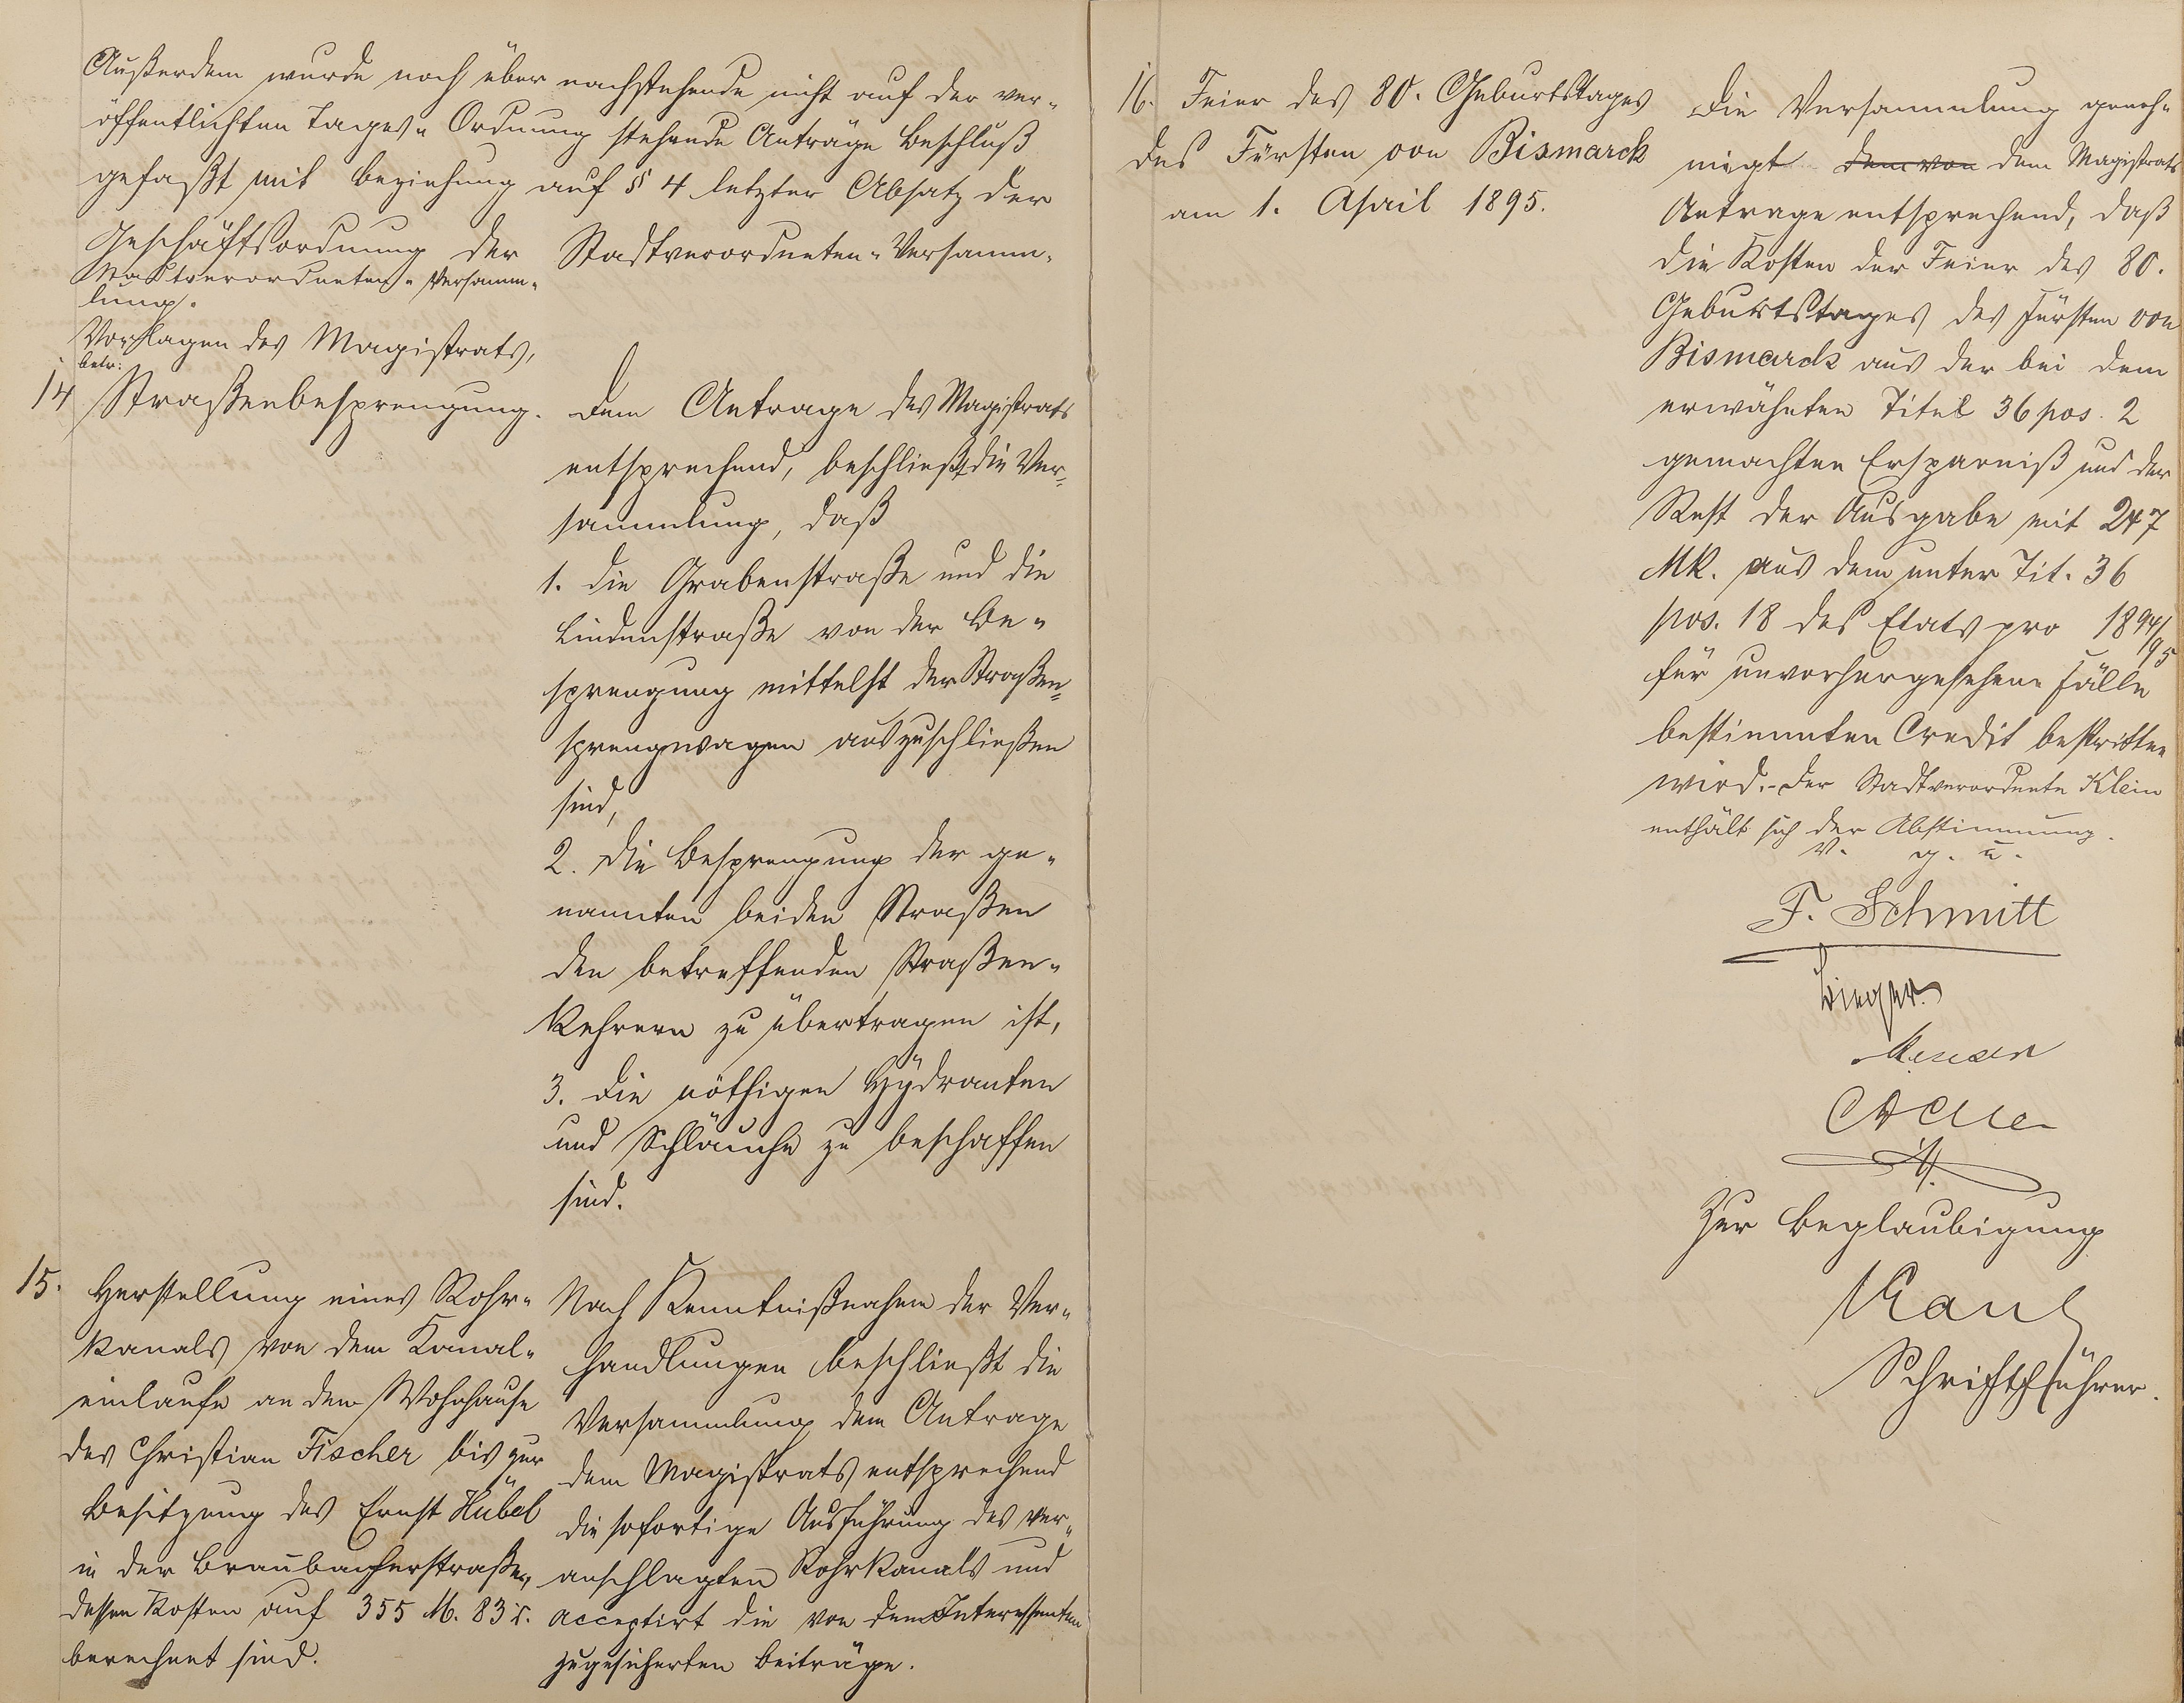 Außerdem wurde noch über nachstehende nicht auf der ver-
öffentlichten Tages-Ordnung stehende Anträge Beschluß
gefaßt mit Beziehung auf § 4 letzter Absatz der
Geschäftsordnung der Stadtverordneten-Versamm-
Stadtverordneten-Versamm-
lung.
Vorlagen des Magistrats,
betr:
14 Straßenbesprengung.
Dem Antrage des Magistrats
entsprechend, beschließt die Ver-
sammlung, daß
1. die Grabenstraße und die
Lindenstraße von der Be-
sprengung mittelst der Straßen-
sprengwagen auszuschließen
sind,
2. die Besprengung der ge-
nannten beiden Straßen
den betreffenden Straßen-
kehrern zu übertragen ist,
3. die nöthigen Hydranten
und Schläuche zu beschaffen
sind.
15. Herstellung eines Rohr-
kanals von dem Kanal-
einlaufe an dem Wohnhause
des Christian Fischer bis zur
Besitzung des Ernst Hübel
in der Braubacherstraße,
dessen Kosten auf 355 M. 83 d.
berechnet sind.
Nach Kenntnißnahme der Ver-
handlungen beschließt die
Versammlung dem Antrage
dem Magistrats entsprechend
die sofortige Ausführung des ver-
anschlagten Rohrkanals und
acceptirt die von den Interessenten
zugesicherten Beiträge.
16. Feier des 80. Geburtstages
des Fürsten von Bismarck
am 1. April 1895.
Die Versammlung geneh-
migt dem von dem Magistrats
Antrage entsprechend, daß
die Kosten der Feier des 80.
Geburtstages des Fürsten von
Bismarck aus der bei dem
erwähnten Titel 36 pos. 2
gemachten Ersparniß und der
Rest der Ausgabe mit 247
Mk. aus dem unter Tit. 36
pos. 18 des Etats pro 1894/95
für unvorhergesehene Fälle
bestimmten Credit bestritten
wird. - Der Stadtverordnete Klein
enthält sich der Abstimmung.
v. g. u.
F. Schmitt
Zur Beglaubigung
Schriftführer.